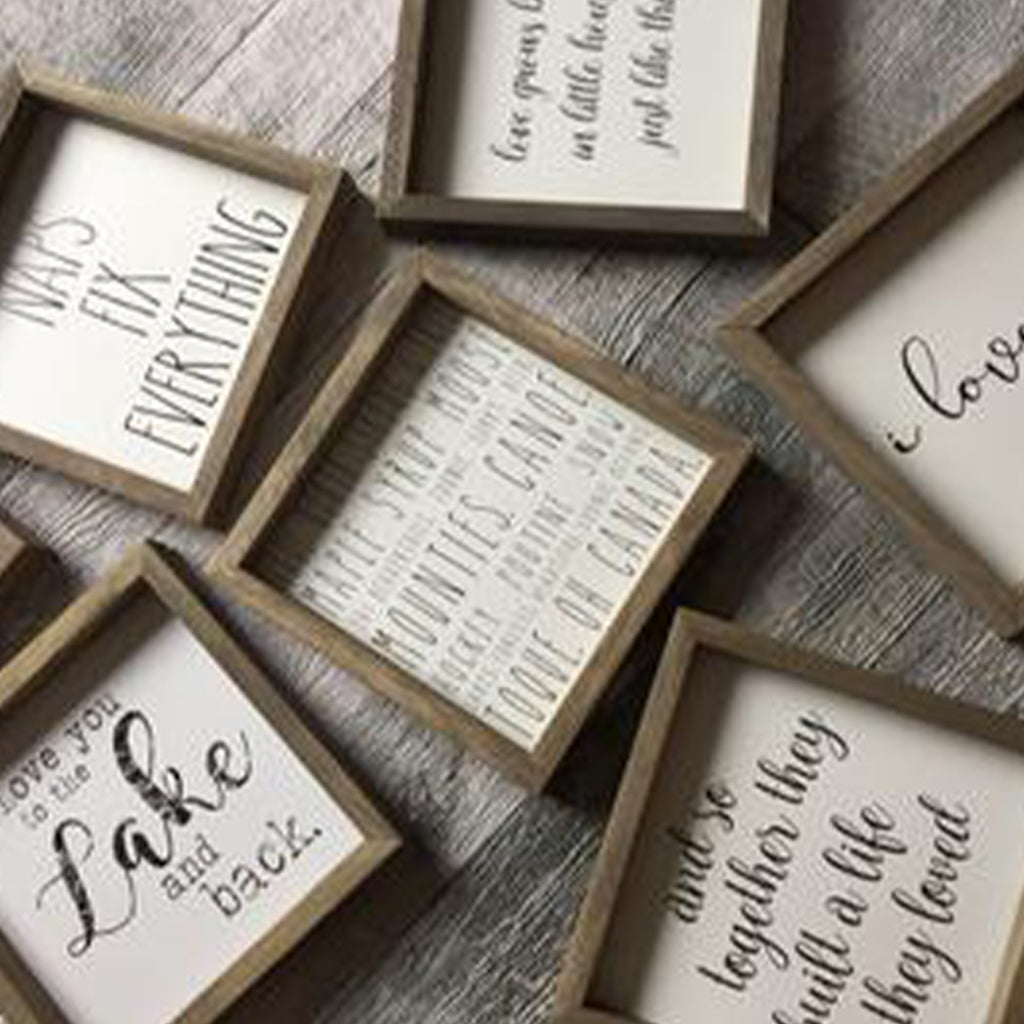 love grows b
in little hou
just like thi
NAPS
FIX
EVERYTHING
i love
MAPLE SYRUP MOOSE
MOUNTIES CANOE
HOCKEY POUTINE SNOW
TOQUE OH CANADA
love you
to the
Lake
and
back.
and so
together they
built a life
they loved